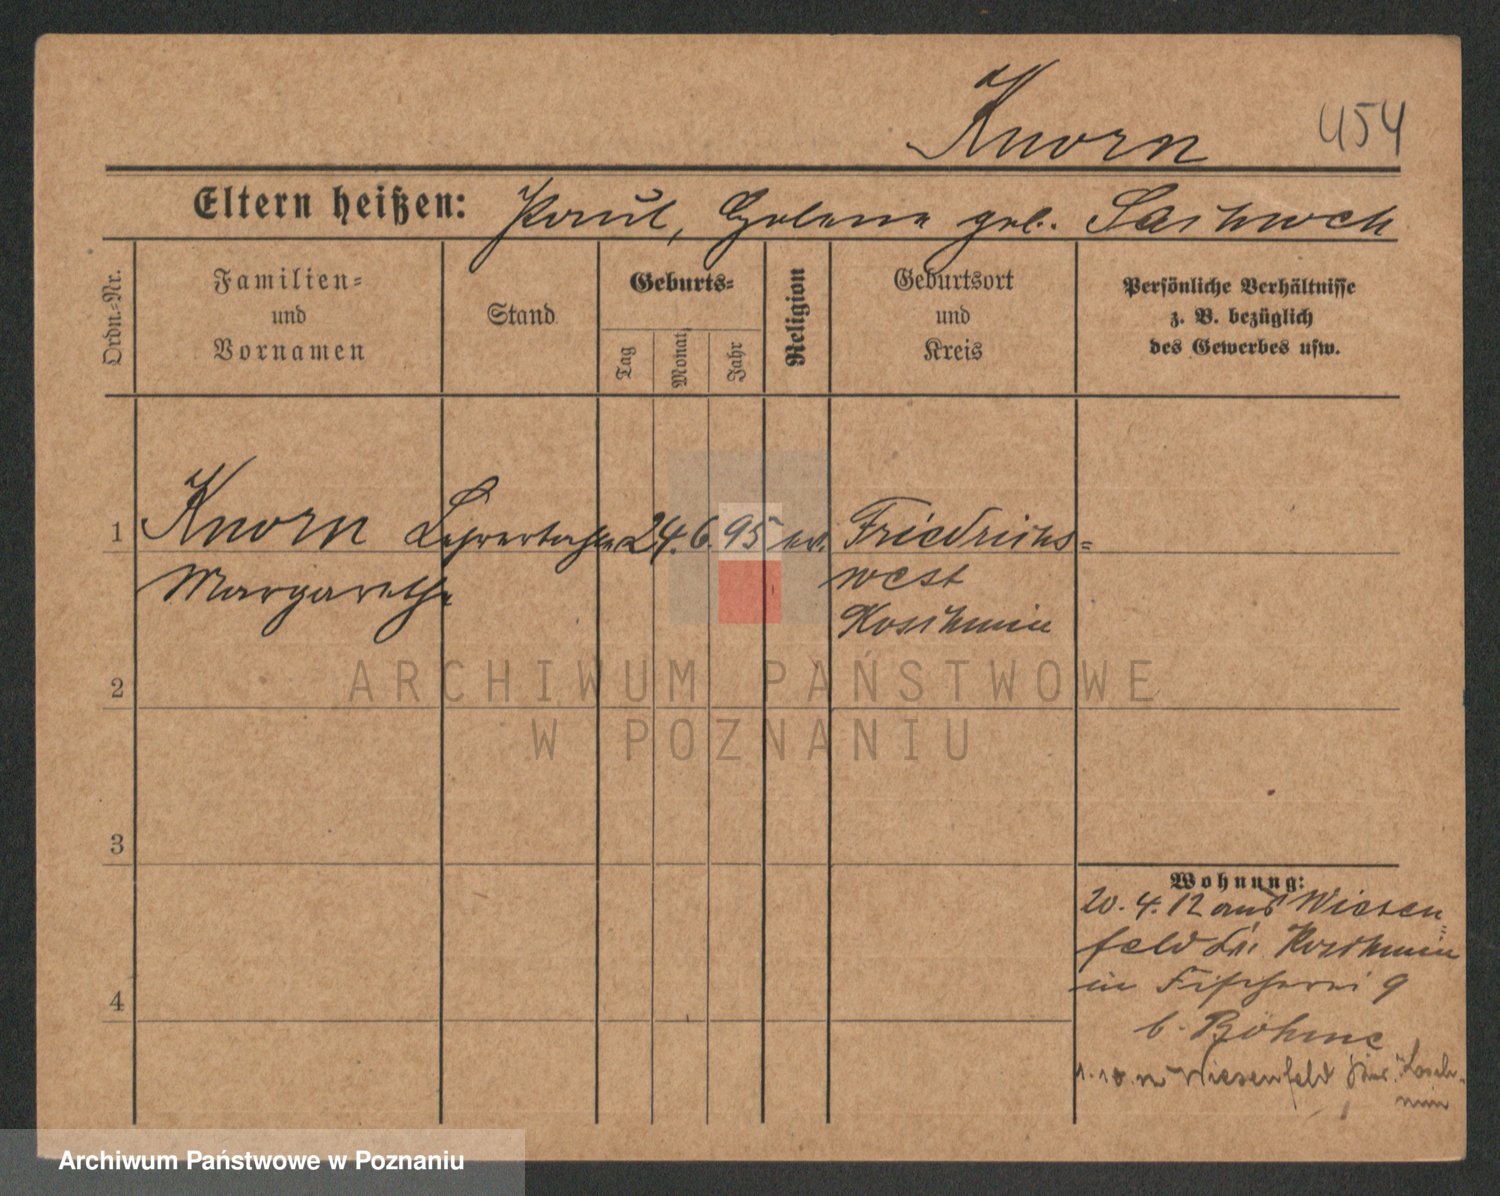 Knorn 454
Eltern heißen: Paul, Helene geb.
Ordn.-Nr.
Familien-
und
Vornamen
Stand
Geburts-
Tag
Monat
Jahr
Religion
Geburtsort
und
Kreis
Persönliche Verhältnisse
z. B. bezüglich
des Gewerbes usw.
1 Knorn Lehrertochter 24. 6. 95 ev. Friedrichs-
Margarethe west
Koschmin
2
ARCHIWUM PAŃSTWOWE
W POZNANIU
3
Wohnung:
20. 4. 12 aus Wiesen-
feld Koschmin
4 in Fischerei 9
b. Böhme
Wiesenfeld Kosch-
min
Archiwum Państwowe w Poznaniu